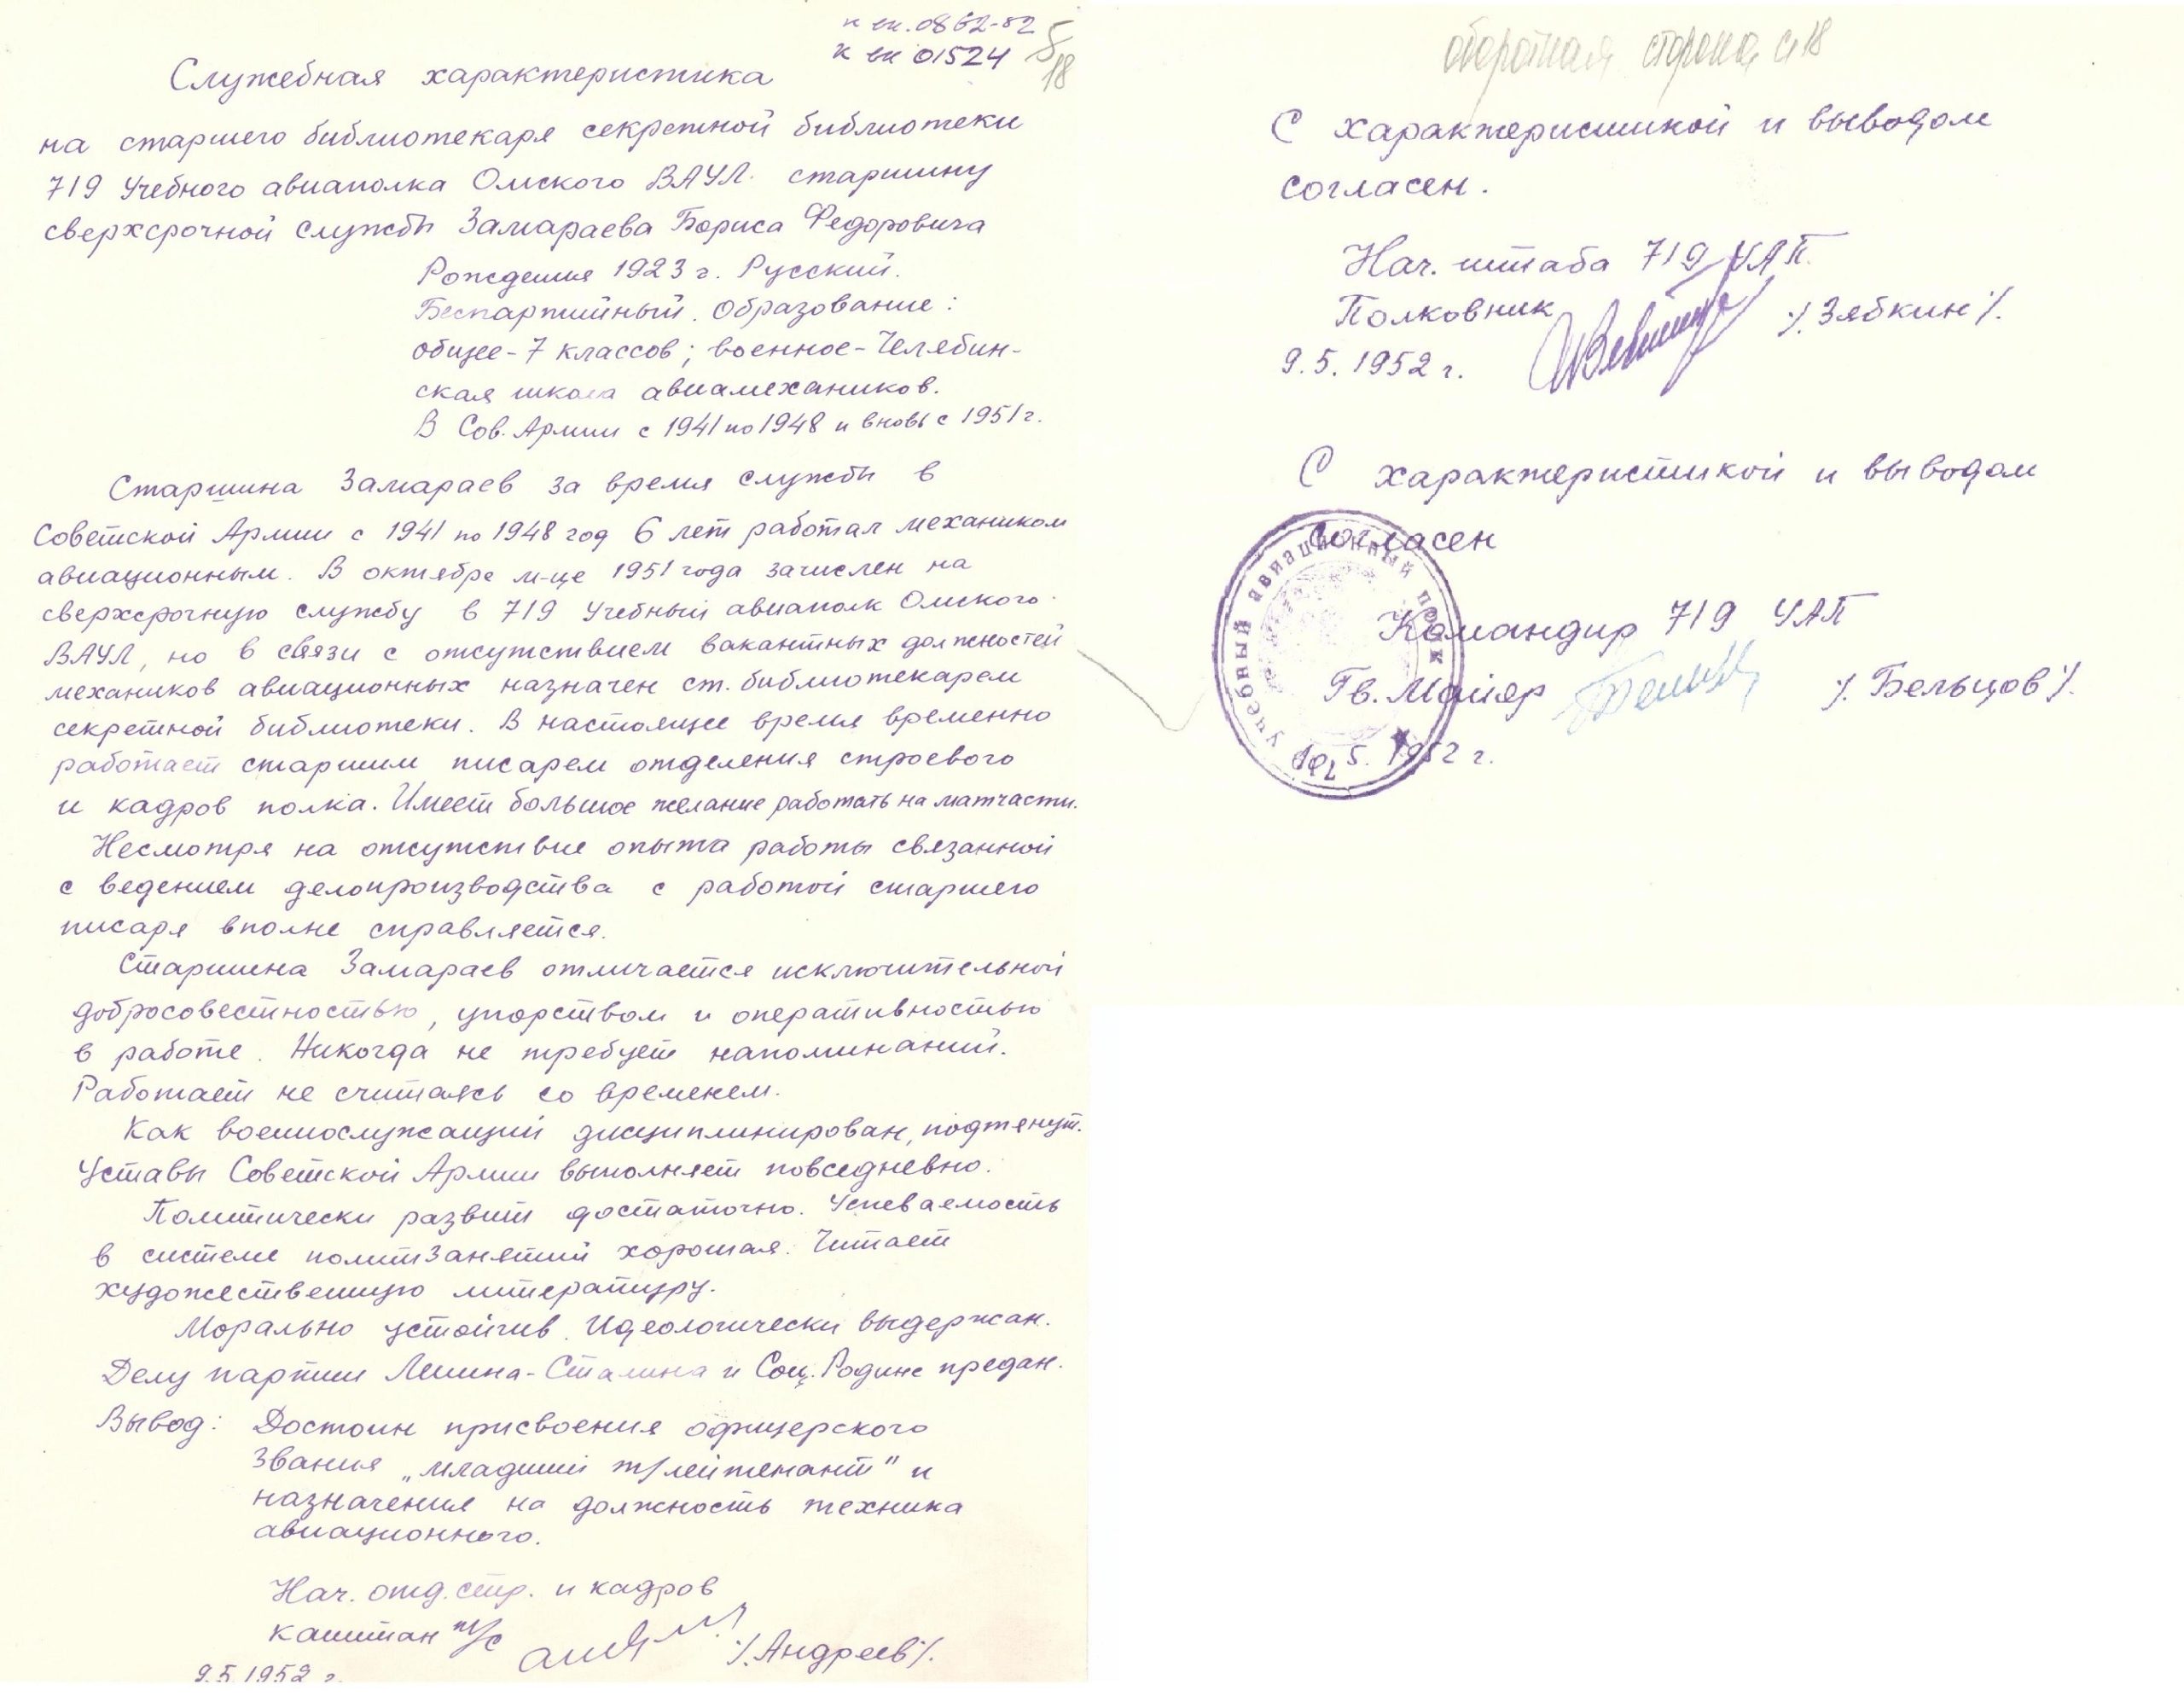 к вх. 0862-52
к вх 01524
18
Служебная характеристика
на старшего библиотекаря секретной библиотеки
719 Учебного авиаполка Омского ВАУЛ. старшину
сверхсрочной службы Замараева Бориса Федоровича
Рождения 1923 г. Русский.
Беспартийный. Образование:
общее - 7 классов; военное - Челябин-
ская школа авиамехаников.
В Сов. Армии с 1941 по 1948 и вновь с 1951 г.
Старшина Замараев за время службы в
Советской Армии с 1941 по 1948 год 6 лет работал механиком
авиационным. В октябре м-це 1951 года зачислен на
сверхсрочную службу в 719 Учебный авиаполк Омского
ВАУЛ, но в связи с отсутствием вакантных должностей
механиков авиационных назначен ст. библиотекарем
секретной библиотеки. В настоящее время временно
работает старшим писарем отделения строевого
и кадров полка. Имеет большое желание работать на матчасти.
Несмотря на отсутствие опыта работы связанной
с ведением делопроизводства с работой старшего
писаря вполне справляется.
Старшина Замараев отличается исключительной
добросовестностью, упорством и оперативностью
в работе. Никогда не требует напоминаний.
Работает не считаясь со временем.
Как военнослужащий дисциплинирован, подтянут.
Уставы Советской Армии выполняет повседневно.
Политически развит достаточно. Успеваемость
в системе политзанятий хорошая. Читает
художественную литературу.
Морально устойчив. Идеологически выдержан.
Делу партии Ленина-Сталина и Соц. Родине предан.
Вывод: Достоин присвоения офицерского
звания „младший т/лейтенант" и
назначения на должность техника
авиационного.
Нач. отд. стр. и кадров
капитан а/с /Андреев/.
9.5.1952 г.
оборотная сторона с 18
С характеристикой и выводом
согласен.
Нач. штаба 719 УАП.
Полковник /Зябкин/.
9.5.1952 г.
С характеристикой и выводом
согласен
Командир 719 УАП
Гв. Майор /Бельцов/.
5. 1952 г.
719 учебный авиационный полк